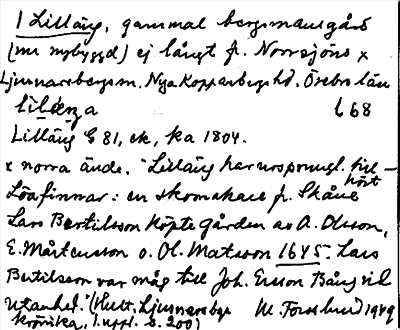 1 Lilläng, gammal bergsmansgård
(nu nybyggd) ej långt fr. Norrsjöns x
Ljusnarsbergs sn. Nya Kopparbergs hd. Örebro län
lìlǝŋa l 68
Lilläng G 81, ek, ka 1804.
x norra ände. "Lilläng har urspungl. tillhört
Löafinnar: en skomakare fr. Skåne
Lars Bertilsson köpte gården av A. Olsson,
E. Mårtensson o. Ol. Matsson 1645. Lars
Bertilsson var måg till Joh. Ersson Bång vid
Utanhed." (Hult, Ljusnarsbergs
krönika, 1. uppl. s. 200) M. Forslund 1949